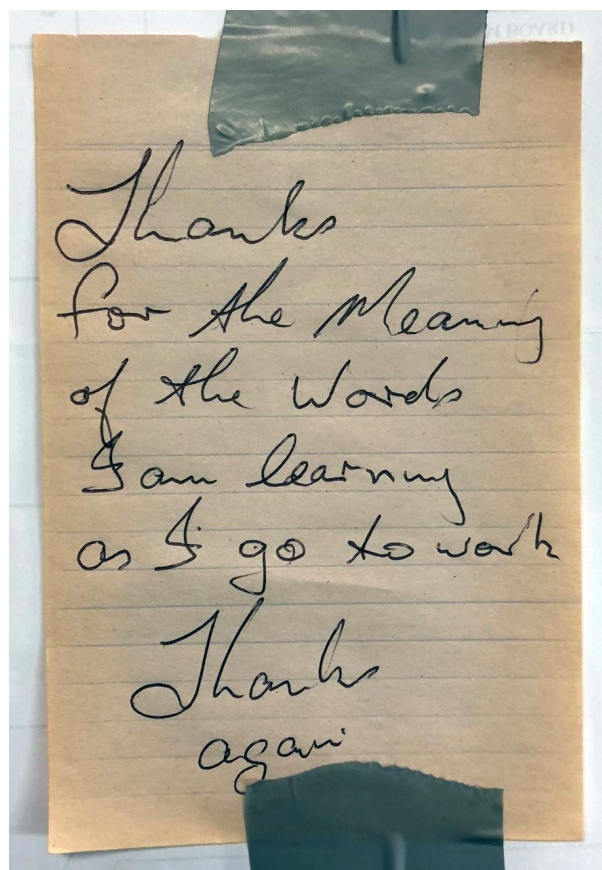 Thanks
for the Meaning
of the Words
I am learning
as I go to work
Thanks
again